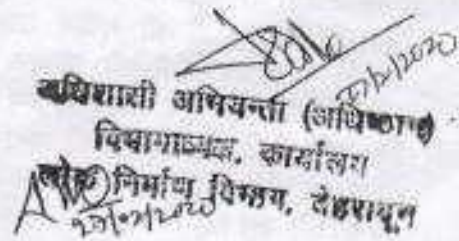 27/2/2020
अधिशासी अभियन्ता (अधिष्ठान)
विभागाध्यक्ष, कार्यालय
लोक निर्माण विभाग, देहरादून